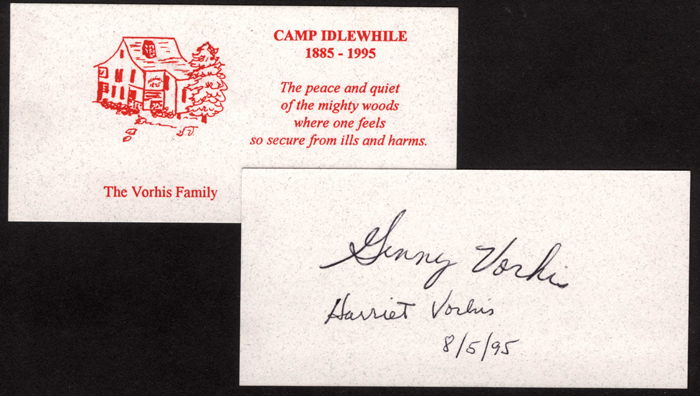 CAMP IDLEWHILE
1885 - 1995
The peace and quiet
of the mighty woods
where one feels
so secure from ills and harms.
The Vorhis Family
Ginny Vorhis
Harriet Vorhis
8/5/95